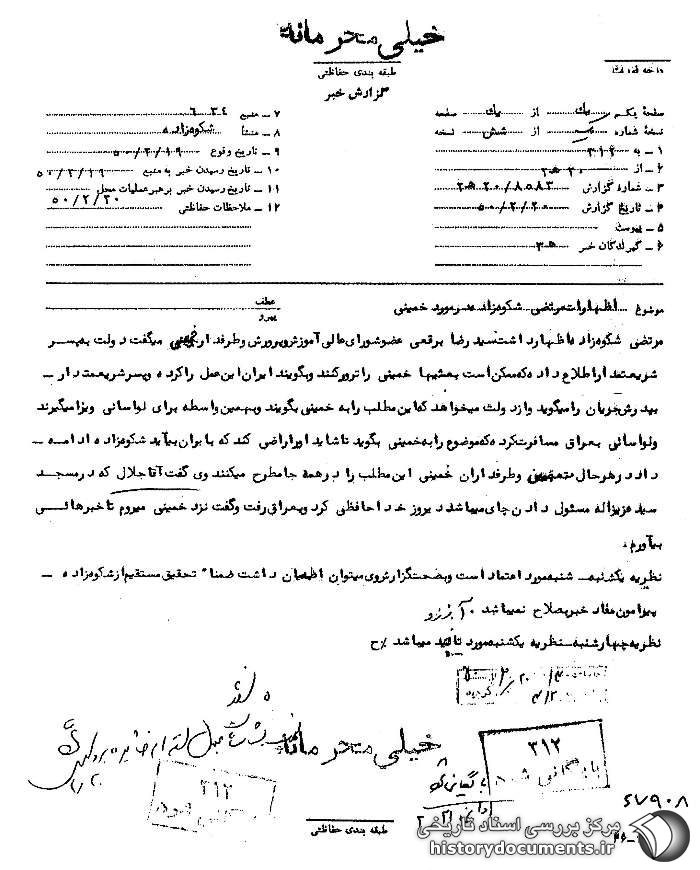 خیلی محرمانه
طبقه بندی حفاظتی
گزارش خبر
صفحهٔ یک از یک صفحه
نسخهٔ شماره از شش نسخه
۱ - به ۳۱۲
۲ - از ۲۰ ه ۲
۳ - شماره گزارش ۲۰/۸۵۸۳ ه ۲
۴ - تاریخ گزارش ۵۰/۲/۲۰
۵ - پیوست
۶ - گیرندگان خبر
۷ - منبع ۶۰۳۴
۸ - منشأ شکوه‌زاده
۹ - تاریخ وقوع ۵۰/۲/۱۹
۱۰ - تاریخ رسیدن خبر به منبع ۵۰/۲/۱۹
۱۱ - تاریخ رسیدن خبر برهبر عملیات محل ۵۰/۲/۲۰
۱۲ - ملاحظات حفاظتی
موضوع اظهارات مرتضی شکوه‌زاده در مورد خمینی
عطف
پیرو
مرتضی شکوه‌زاده اظهار داشت سید رضا برقعی عضو شورای عالی آموزش و پرورش و طرفدار خمینی میگفت دولت به پسر
شریعتمدار اطلاع داده که ممکن است بعثیها خمینی را ترور کنند و بگویند ایران این عمل را کرده و پسر شریعتمدار -
به پدرش جریان را میگوید و از دولت میخواهد که این مطلب را به خمینی بگویند و بهمین واسطه برای لواسانی ویزا میگیرند
و لواسانی بعراق مسافرت کرده که موضوع را به خمینی بگوید تا شاید او را راضی کند که بایران بیاید شکوه‌زاده ادامه -
داد در هر حال متعصبین و طرفداران خمینی این مطلب را در همه جا مطرح میکنند وی گفت آقا جلال که در مسجد
سید عزیزاله مسئول دادن چای میباشد دیروز خداحافظی کرد و بعراق رفت و گفت نزد خمینی میروم تا خبرهائی
بیاورم.
نظریه یکشنبه - شنبه مورد اعتماد است و بصحت گزارش وی میتوان اطمینان داشت ضمناً تحقیق مستقیم از شکوه‌زاده -
پیرامون مفاد خبر بصلاح نمیباشد. آبرزو
نظریه چهارشنبه - نظریه یکشنبه مورد تائید میباشد ح
خیلی محرمانه
۳۱۲
بایگانی شود
۳۱۲
بایگانی شود
۶۷۹۰۸
طبقه بندی حفاظتی
مرکز بررسی اسناد تاریخی
historydocuments.ir